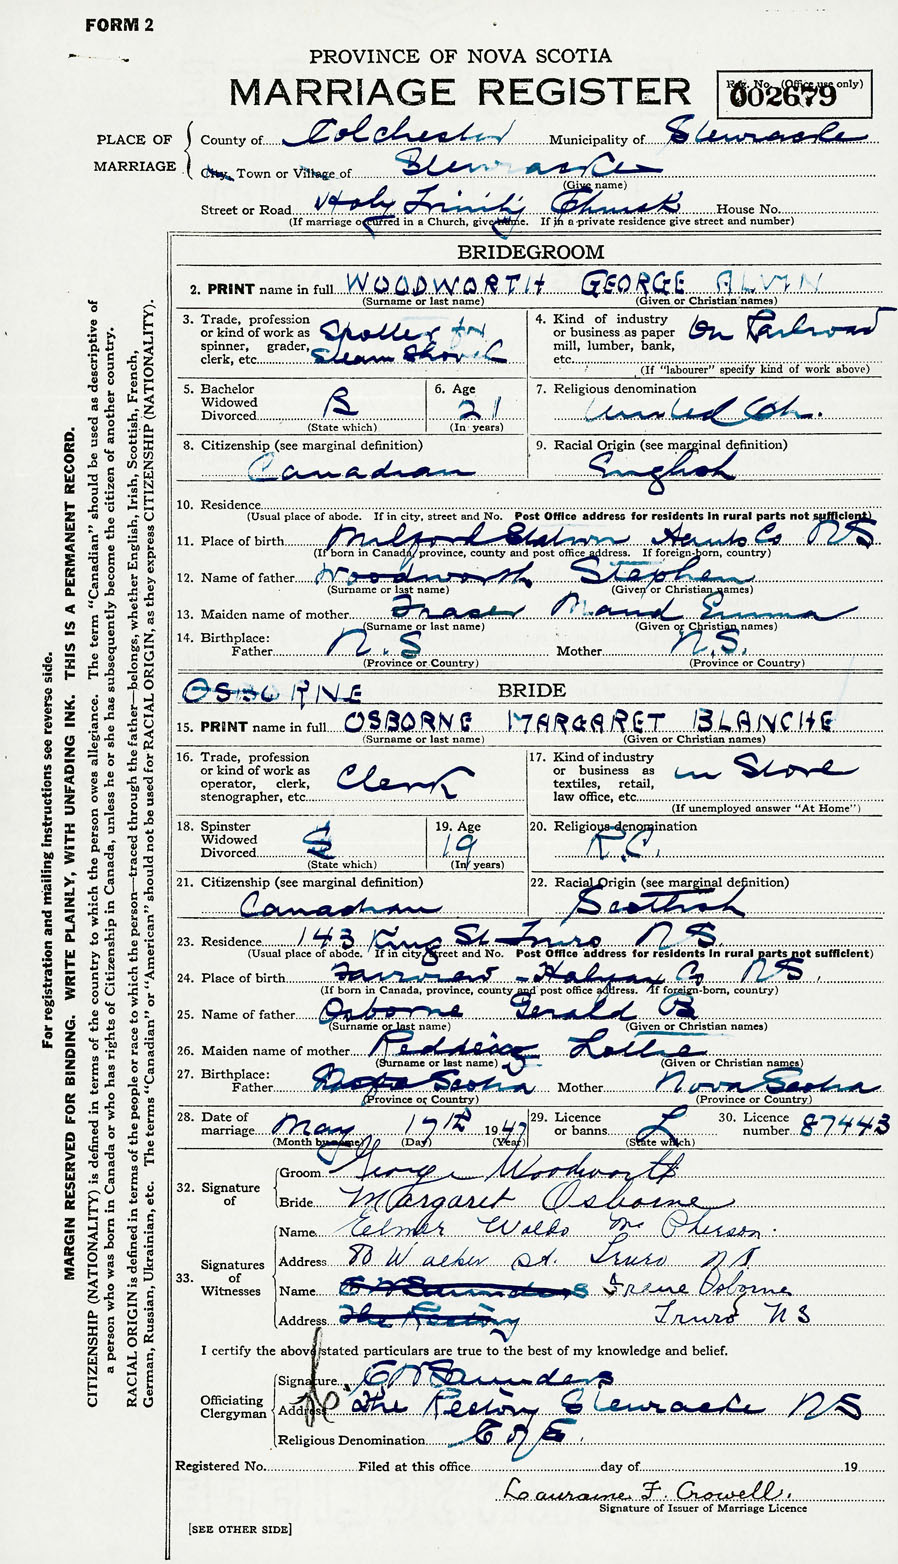 FORM 2
PROVINCE OF NOVA SCOTIA
MARRIAGE REGISTER
Reg. No. (Office use only)
002679
PLACE OF MARRIAGE
County of Colchester Municipality of Stewiacke
City, Town or Village of Stewiacke
(Give name)
Street or Road Holy Trinity Church House No.
(If marriage occurred in a Church, give name. If in a private residence give street and number)
BRIDEGROOM
2. PRINT name in full WOODWORTH GEORGE ALVIN
(Surname or last name) (Given or Christian names)
3. Trade, profession or kind of work as spinner, grader, clerk, etc. Spotter for Steam Shovel
4. Kind of industry or business as paper mill, lumber, bank, etc. On Railroad
(If "labourer" specify kind of work above)
5. Bachelor Widowed Divorced B
(State which)
6. Age 21
(In years)
7. Religious denomination United Ch.
8. Citizenship (see marginal definition) Canadian
9. Racial Origin (see marginal definition) English
10. Residence
(Usual place of abode. If in city, street and No. Post Office address for residents in rural parts not sufficient)
11. Place of birth Milford Station Hants Co NS
(If born in Canada, province, county and post office address. If foreign-born, country)
12. Name of father Woodworth Stephen
(Surname or last name) (Given or Christian names)
13. Maiden name of mother Fraser Maud Emma
(Surname or last name) (Given or Christian names)
14. Birthplace: Father N.S Mother N.S.
(Province or Country) (Province or Country)
OSBORNE
BRIDE
15. PRINT name in full OSBORNE MARGARET BLANCHE
(Surname or last name) (Given or Christian names)
16. Trade, profession or kind of work as operator, clerk, stenographer, etc. Clerk
17. Kind of industry or business as textiles, retail, law office, etc. in Store
(If unemployed answer "At Home")
18. Spinster Widowed Divorced S
(State which)
19. Age 19
(In years)
20. Religious denomination R.C.
21. Citizenship (see marginal definition) Canadian
22. Racial Origin (see marginal definition) Scottish
23. Residence 143 King St Truro NS.
(Usual place of abode. If in city, street and No. Post Office address for residents in rural parts not sufficient)
24. Place of birth Fairview - Halifax Co NS.
(If born in Canada, province, county and post office address. If foreign-born, country)
25. Name of father Osborne Gerald B
(Surname or last name) (Given or Christian names)
26. Maiden name of mother Redding Lottie
(Surname or last name) (Given or Christian names)
27. Birthplace: Father Nova Scotia Mother Nova Scotia
(Province or Country) (Province or Country)
28. Date of marriage May 17th 1947
(Month by name) (Day) (Year)
29. Licence or banns L
(State which)
30. Licence number 87443
32. Signature of
Groom George Woodworth
Bride Margaret Osborne
33. Signatures of Witnesses
Name Elmer Waldo McPherson.
Address 80 Walker St. Truro NS
Name Irene Osborne
Address The Rectory Truro NS
I certify the above stated particulars are true to the best of my knowledge and belief.
Officiating Clergyman
Signature Saunders
Address The Rectory Stewiacke NS
Religious Denomination C of E.
Registered No. Filed at this office day of 19
Lauraine F. Crowell.
Signature of Issuer of Marriage Licence
[SEE OTHER SIDE]
For registration and mailing instructions see reverse side.
MARGIN RESERVED FOR BINDING. WRITE PLAINLY, WITH UNFADING INK. THIS IS A PERMANENT RECORD.
CITIZENSHIP (NATIONALITY) is defined in terms of the country to which the person owes allegiance. The term "Canadian" should be used as descriptive of
a person who was born in Canada or who has rights of Citizenship in Canada, unless he or she has subsequently become the citizen of another country.
RACIAL ORIGIN is defined in terms of the people or race to which the person—traced through the father—belongs, whether English, Irish, Scottish, French,
German, Russian, Ukrainian, etc. The terms "Canadian" or "American" should not be used for RACIAL ORIGIN, as they express CITIZENSHIP (NATIONALITY).